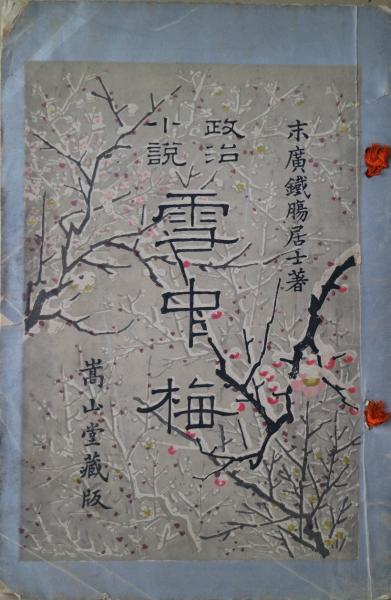 末廣鐵膓居士著
政治
小説
雪中梅
嵩山堂藏版